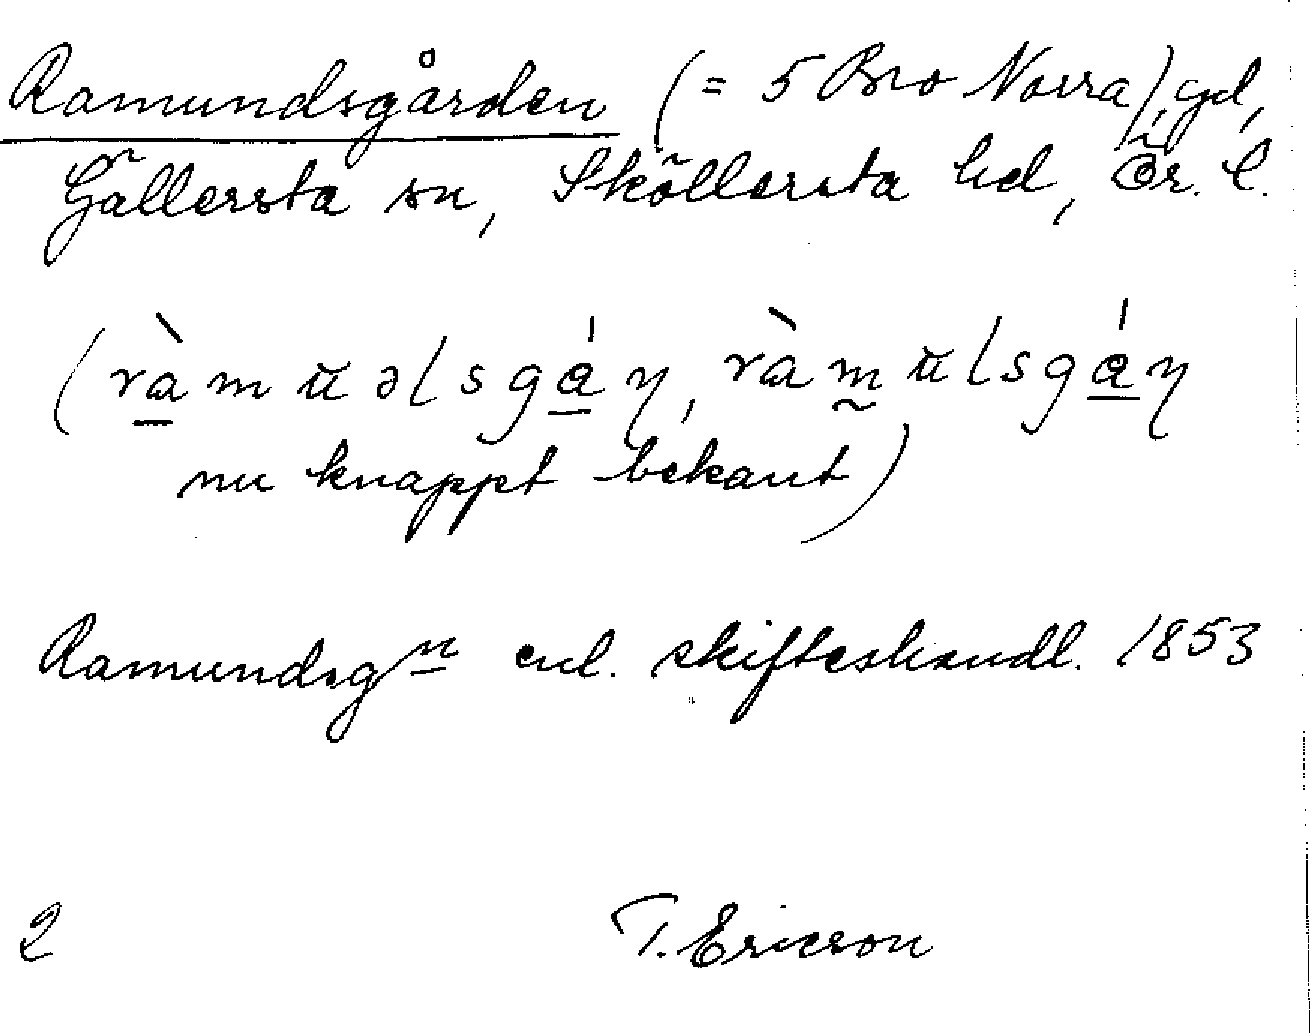 Ramundsgården (= 5 Bro Norra), gd,
Gällersta sn, Sköllersta hd, Ör. l.
(ràmŭəlsgáη, ràmŭlsgáη
nu knappt bekant)
Ramundsgn enl. skifteshandl. 1853
2 T. Ericson